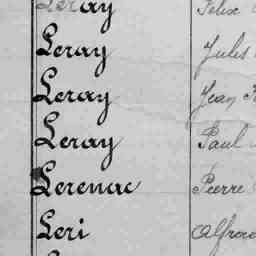 Leray Felix
Leray Jules
Leray Jean
Leray Paul
Lerenac Pierre
Leri Alfred